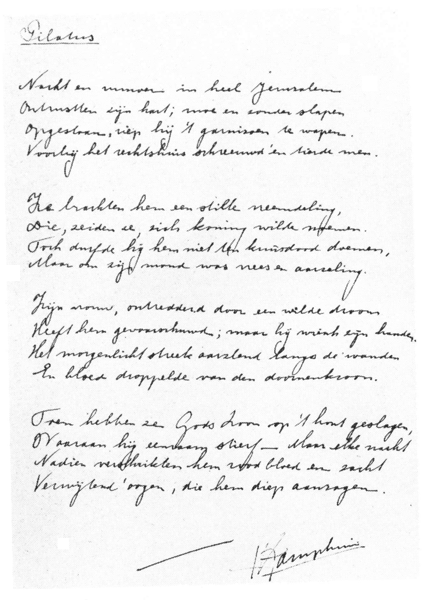 Pilatus
Nacht en rumoer in heel Jerusalem
Ontrustten zijn hart; moe en zonder slapen
Opgestaan, riep hij 't garnizoen te wapen.
Voorbij het rechtshuis schreeuwd' en tierde men.
Ze brachten hem een stille vreemdeling,
Die, zeiden ze, zich koning wilde noemen.
Toch durfde hij hem niet ten kruisdood doemen,
Maar om zijn mond was vrees en aarzeling.
Zijn vrouw, ontredderd door een wilde droom
Heeft hem gewaarschuwd; maar hij wiesch zijn handen.
Het morgenlicht streek aarzlend langs de wanden
En bloed droppelde van den doornenkroon.
Toen hebben ze Gods Zoon op 't hout geslagen,
Waaraan hij eenzaam stierf – Maar elke nacht
Nadien verschrikten hem rood bloed en zacht
Verwijtend' oogen, die hem diep aanzagen.